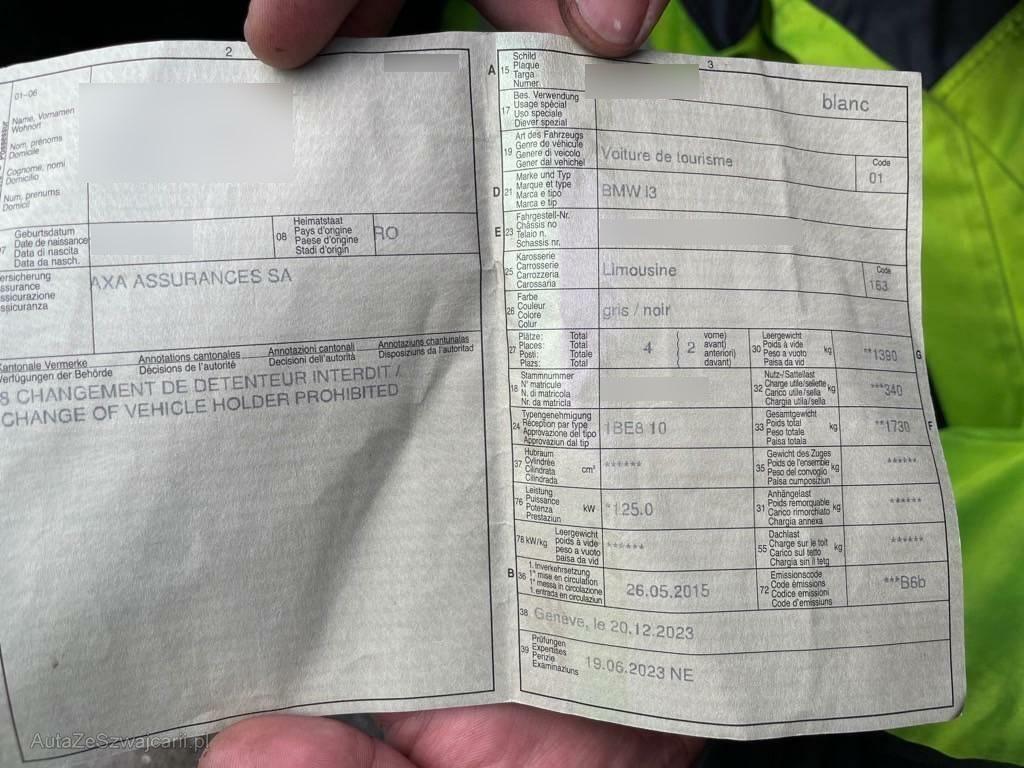 2
01-06
Name, Vornamen
Wohnort
Nom, prénoms
Domicile
Cognome, nomi
Domicilio
Num, prenums
Domicil
Geburtsdatum
Date de naissance
Data di nascita
Data da nasch.
08 Heimatstaat
Pays d'origine
Paese d'origine
Stadi d'origin
RO
AXA ASSURANCES SA
Kantonale Vermerke
Verfügungen der Behörde
Annotations cantonales
Décisions de l'autorité
Annotazioni cantonali
Decisioni dell'autorità
Annotaziuns chantunalas
Disposiziuns da l'autoritad
8 CHANGEMENT DE DETENTEUR INTERDIT /
CHANGE OF VEHICLE HOLDER PROHIBITED
3
A 15 Schild
Plaque
Targa
Numer
blanc
17 Bes. Verwendung
Usage spécial
Uso speciale
Diever spezial
19 Art des Fahrzeugs
Genre de véhicule
Genere di veicolo
Gener dal vehichel
Voiture de tourisme
Code
01
D 21 Marke und Typ
Marque et type
Marca e tipo
Marca e tip
BMW I3
E 23 Fahrgestell-Nr.
Châssis no
Telaio n.
Schassis nr.
25 Karosserie
Carrosserie
Carrozzeria
Carossaria
Limousine
Code
163
26 Farbe
Couleur
Colore
Colur
gris / noir
27 Plätze: Total
Places: Total
Posti: Totale
Plazs: Total
4
( 2 vorne)
avant)
anteriori)
davant)
30 Leergewicht
Poids à vide
Peso a vuoto
Paisa da vid
kg
**1390
G
18 Stammnummer
N° matricule
N. di matricola
Nr. da matricla
32 Nutz-/Sattellast
Charge utile/sellette
Carico utile/sella
Chargia utila/sella
kg
***340
24 Typengenehmigung
Réception par type
Approvazione del tipo
Approvaziun dal tip
1BE8 10
33 Gesamtgewicht
Poids total
Peso totale
Paisa totala
kg
**1730
F
37 Hubraum
Cylindrée
Cilindrata
Cilindrada
cm³
******
35 Gewicht des Zuges
Poids de l'ensemble
Peso del convoglio
Paisa cumposiziun
kg
******
76 Leistung
Puissance
Potenza
Prestaziun
kW
*125.0
31 Anhängelast
Poids remorquable
Carico rimorchiato
Chargia annexa
kg
******
78 kW/kg
Leergewicht
poids à vide
peso a vuoto
paisa da vid
******
55 Dachlast
Charge sur le toit
Carico sul tetto
Chargia sin il tetg
kg
******
B 36 1. Inverkehrsetzung
1re mise en circulation
1a messa in circolazione
1. entrada en circulaziun
26.05.2015
72 Emissionscode
Code émissions
Codice emissioni
Code d'emissiuns
***B6b
38 Genève, le 20.12.2023
39 Prüfungen
Expertises
Perizie
Examinaziuns
19.06.2023 NE
AutaZeSzwajcarii.pl